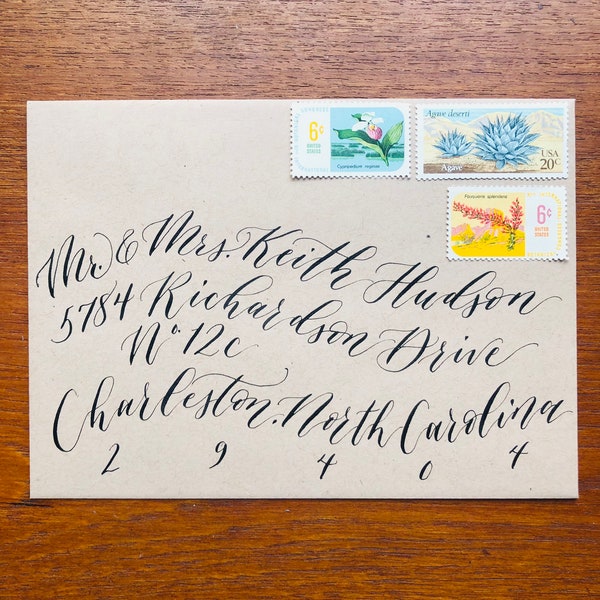 6¢
UNITED STATES
Cypripedium reginae
Agave deserti
Agave
USA
20c
Fouquieria splendens
6¢
UNITED STATES
Mr. & Mrs. Keith Hudson
5784 Richardson Drive
No. 12c
Charleston, North Carolina
2 9 4 0 4